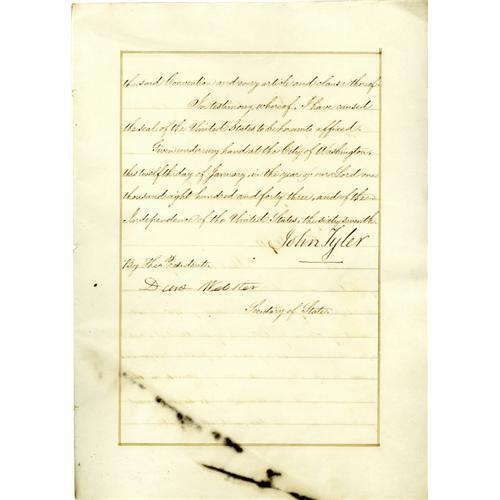 the said Convention and every article and clause thereof.
In testimony whereof, I have caused
the seal of the United States to be hereunto affixed.
Given under my hand at the City of Washington,
this twelfth day of January, in the year of our Lord one
thousand eight hundred and forty three, and of the
Independence of the United States, the sixty seventh.
John Tyler
By the President.
Danl Webster
Secretary of State.